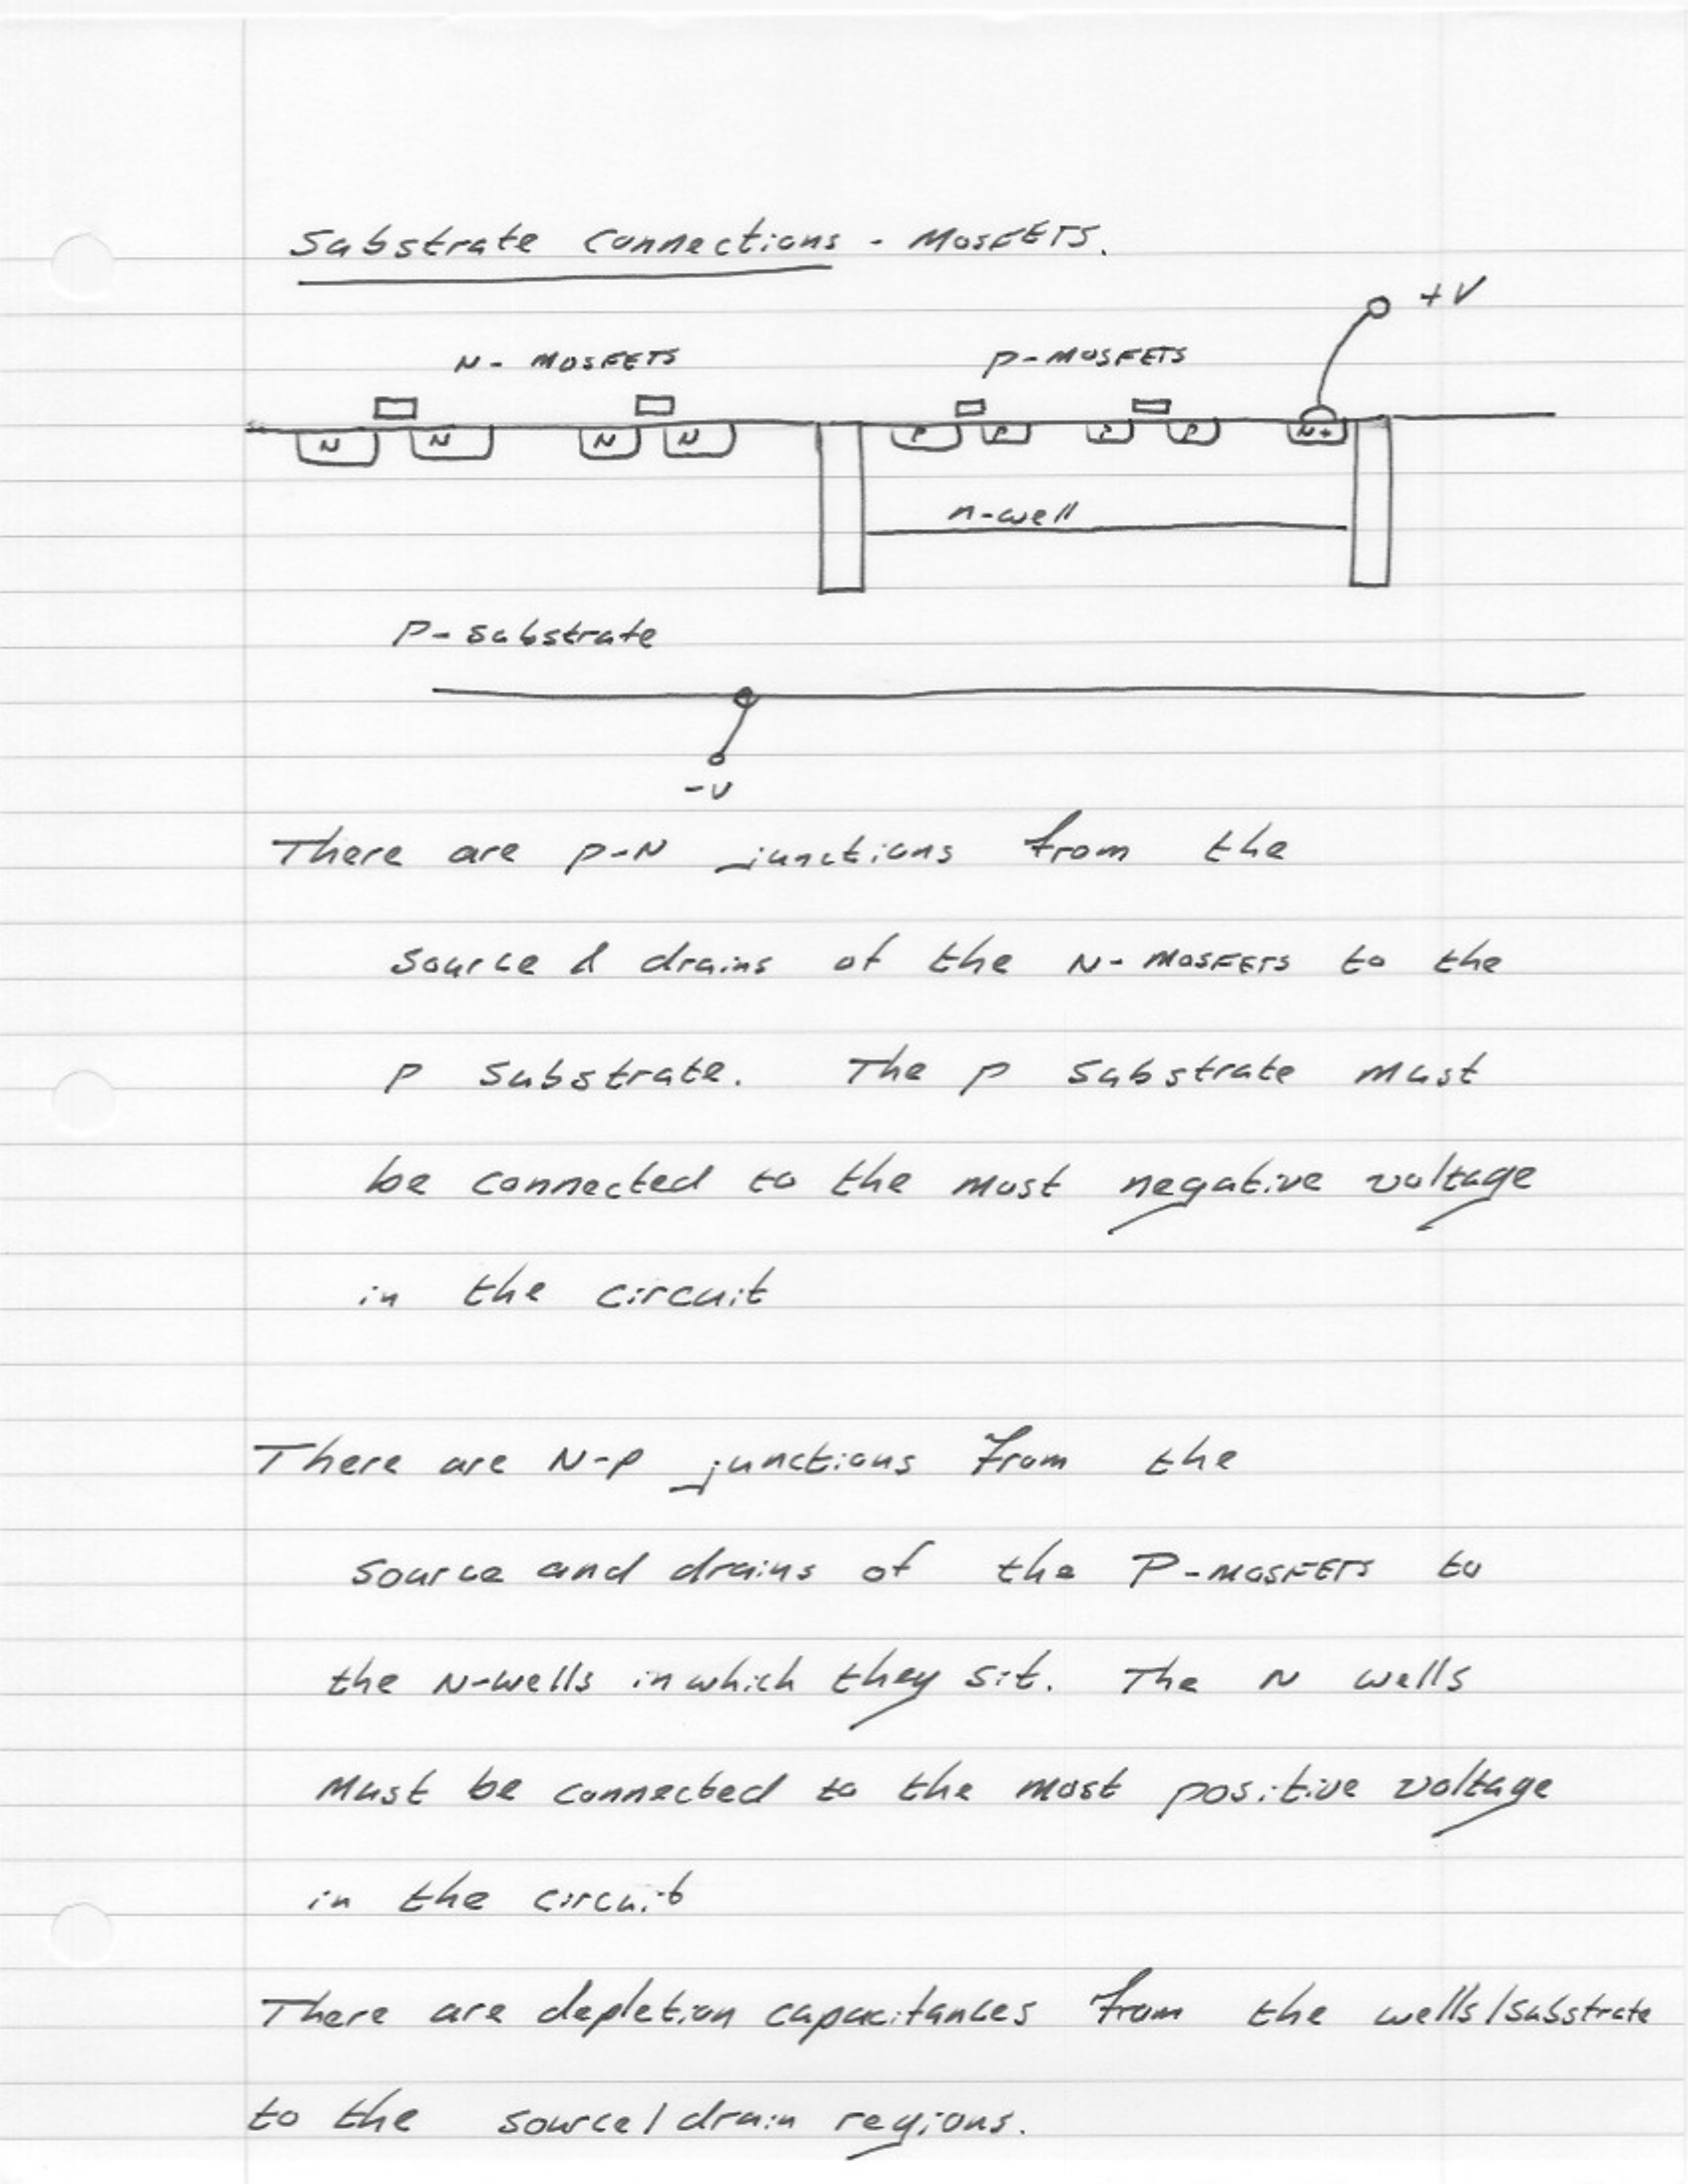 Substrate Connections - MOSFETS.
+V
N- MOSFETS
P-MOSFETS
N N N N P P P P N+
n-well
P- substrate
-V
There are P-N junctions from the
source & drains of the N-MOSFETS to the
P substrate. The P substrate must
be connected to the most negative voltage
in the circuit
There are N-P junctions from the
source and drains of the P-MOSFETS to
the N-wells in which they sit. The N wells
Must be connected to the most positive voltage
in the circuit
There are depletion capacitances from the wells/substrate
to the source/drain regions.